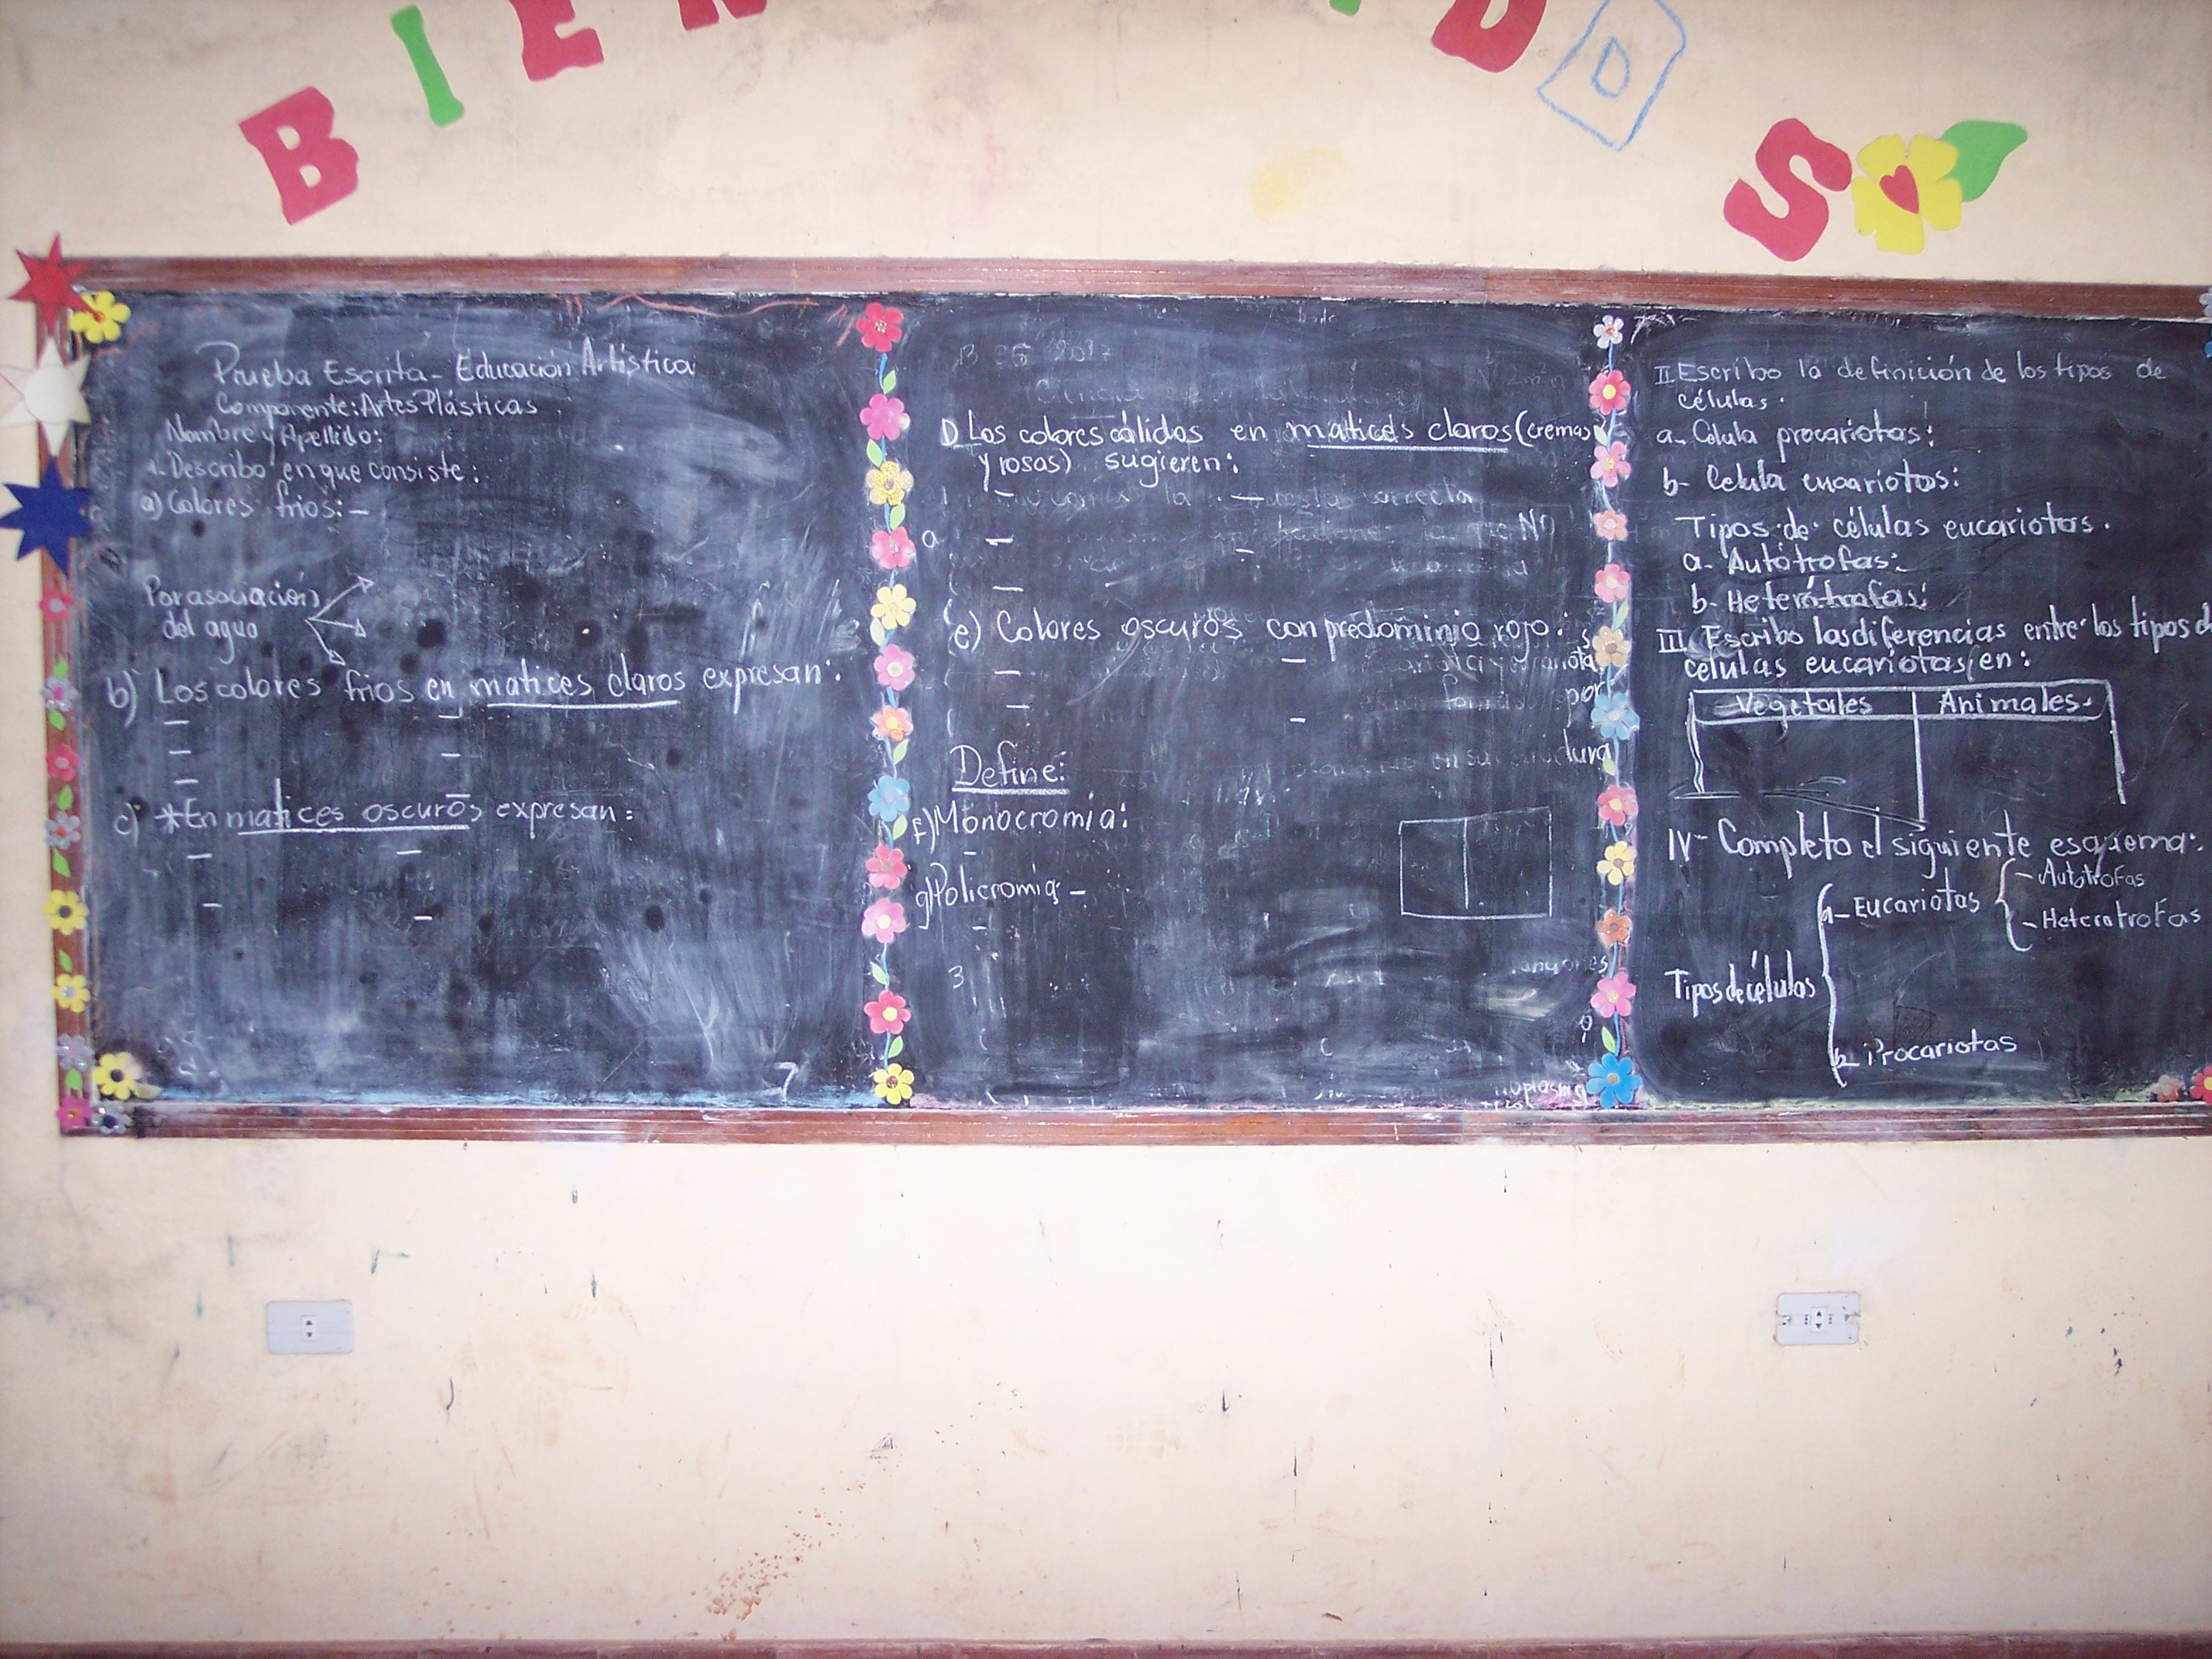 BIEN
D
D
S
Prueba Escrita - Educación Artística
Componente: Artes Plásticas
Nombre y Apellido:
1. Describo en que consiste:
a) Colores fríos: -
Por asociación
del agua
b) Los colores fríos en matices claros expresan:
c) *En matices oscuros expresan:
D Los colores cálidos en matices claros (cremas
y rosas) sugieren:
e) Colores oscuros con predominio rojo:
Define:
f) Monocromia:
g) Policromia: -
3
II Escribo la definición de los tipos de
células.
a. Célula procariotas:
b- Celula eucariotas:
Tipos de células eucariotas.
a- Autótrofas:
b- Heterótrofas:
III Escribo las diferencias entre los tipos d
células eucariotas en:
Vegetales Animales.
IV- Completo el siguiente esquema:
Tipos de células
a- Eucariotas
- Autótrofas
- Heterotrofas
b- Procariotas